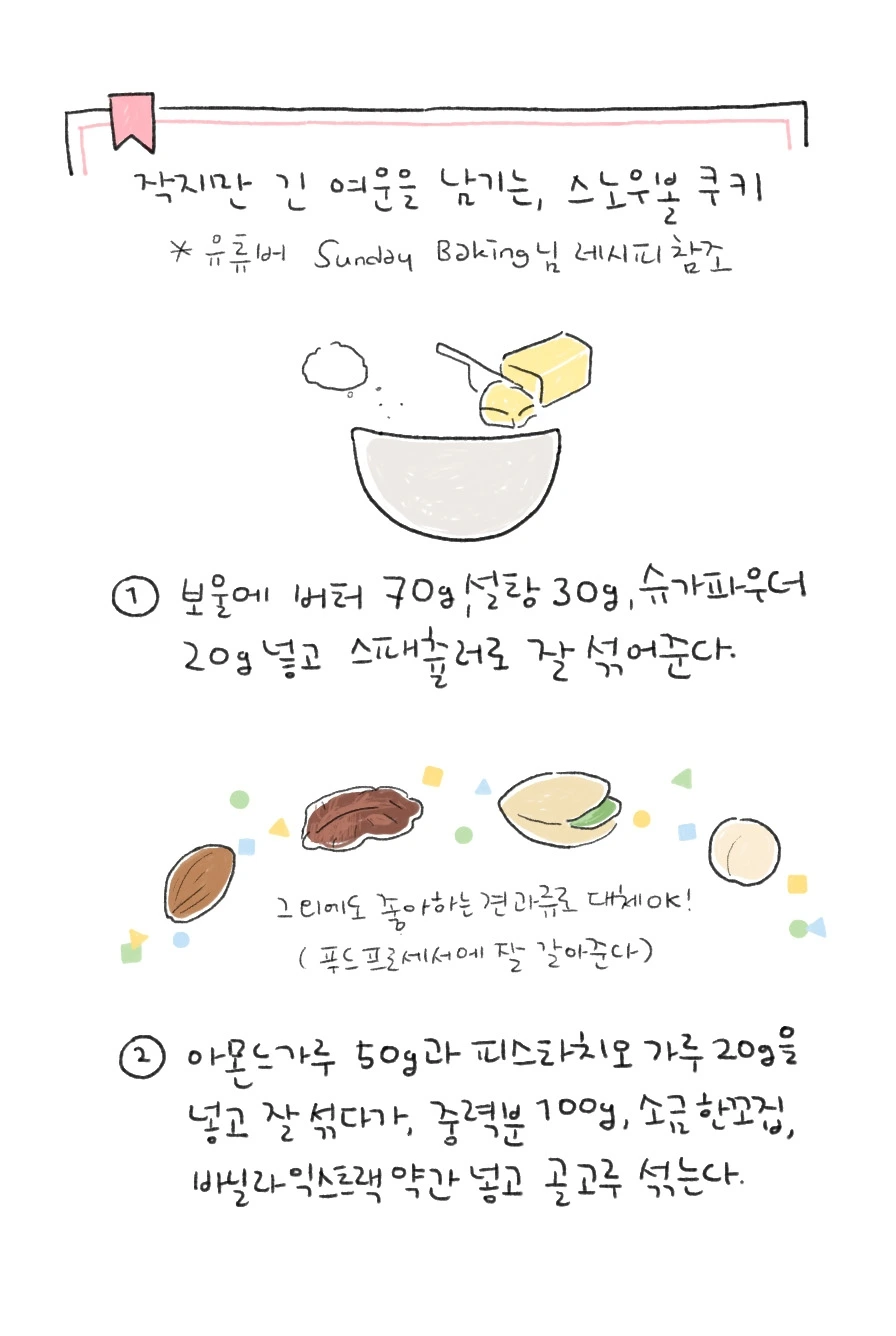 작지만 긴 여운을 남기는, 스노우볼 쿠키
* 유튜버 Sunday Baking님 레시피 참조
① 보울에 버터 70g, 설탕 30g, 슈가파우더
20g 넣고 스패츌러로 잘 섞어준다.
그 외에도 좋아하는 견과류로 대체OK!
( 푸드프로세서에 잘 갈아준다)
② 아몬드가루 50g과 피스타치오 가루 20g을
넣고 잘 섞다가, 중력분 100g, 소금 한꼬집,
바닐라익스트랙 약간 넣고 골고루 섞는다.